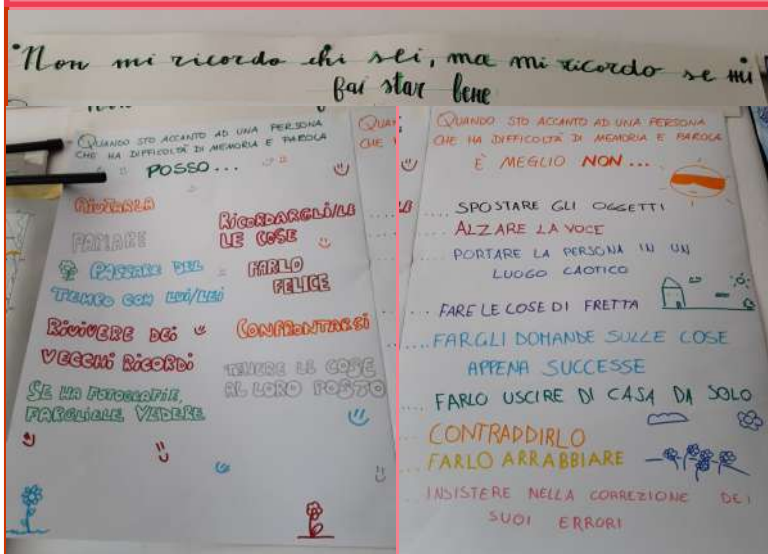 "Non mi ricordo chi sei, ma mi ricordo se mi
fai star bene
QUANDO STO ACCANTO AD UNA PERSONA
CHE HA DIFFICOLTÀ DI MEMORIA E PAROLA
POSSO...
AIUTARLA
PARLARE
PASSARE DEL
TEMPO CON LUI/LEI
RIVIVERE DEI
VECCHI RICORDI
SE HA FOTOGRAFIE,
FARGLIELE VEDERE
RICORDARGLI/LE
LE COSE
FARLO
FELICE
CONFRONTARCI
TENERE LE COSE
AL LORO POSTO
QUAN
CHE
QUANDO STO ACCANTO AD UNA PERSONA
CHE HA DIFFICOLTÀ DI MEMORIA E PAROLA
È MEGLIO NON...
... SPOSTARE GLI OGGETTI
... ALZARE LA VOCE
... PORTARE LA PERSONA IN UN
LUOGO CAOTICO
... FARE LE COSE DI FRETTA
.... FARGLI DOMANDE SULLE COSE
APPENA SUCCESSE
... FARLO USCIRE DI CASA DA SOLO
... CONTRADDIRLO
... FARLO ARRABBIARE
... INSISTERE NELLA CORREZIONE DEI
SUOI ERRORI